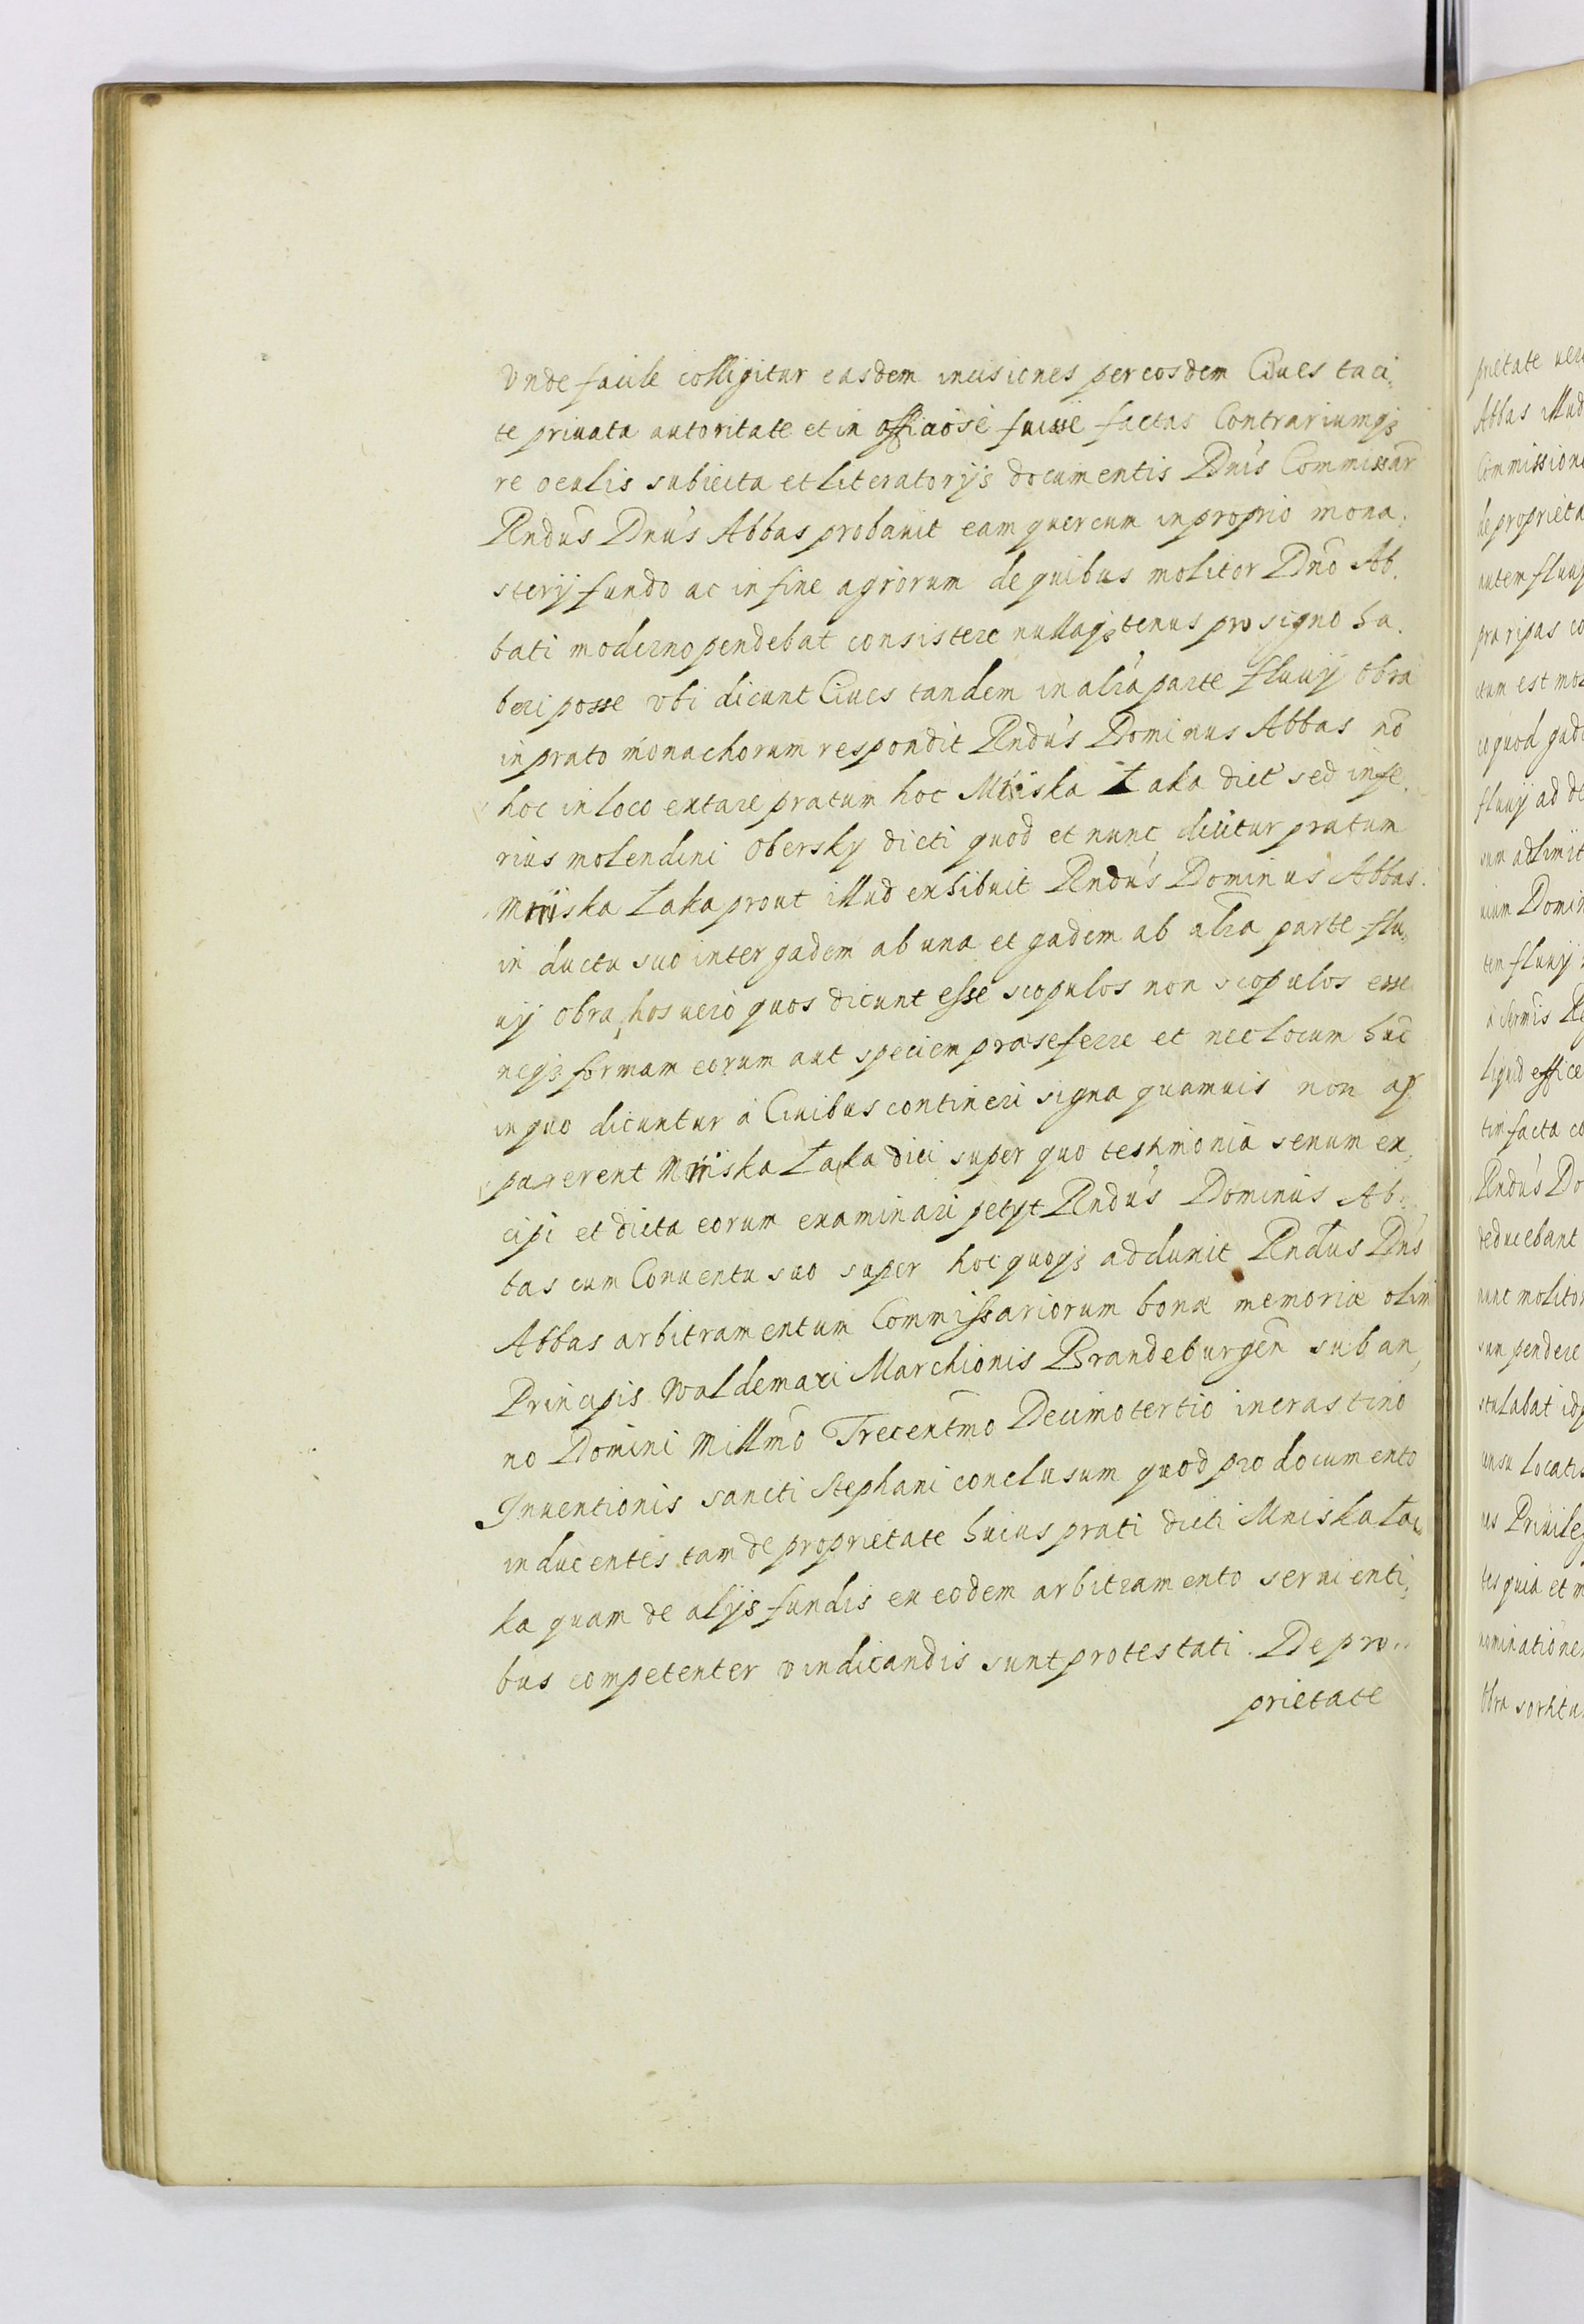 Vnde facile colligitur easdem incisiones per eosdem Ciues taci,
te priuata autoritate et in officiose fuisse factas Contrariumq;
re oculis subiecta et literatorijs documentis Dnis Commissar
Rndus Dnus Abbas probauit eam quercum in proprio mona,
sterij fundo ac in fine agrorum de quibus molitor Dno Ab,
bati moderno pendebat consistere nullaq; tenus pro signo ha,
beri posse vbi dicunt Ciues tandem in altra parte fluuij Obra
in prato monachorum respondit Rndus Dominus Abbas no
hoc in loco extare pratum hoc Mniska Łaka dict sed infe,
rius molendini Obersky dicti quod et nunc dicitur pratum
Mniska Łaka prout illud exhibuit Rndus Dominus Abbas
in ductu suo inter gadem ab una et gadem ab altra parte flu,
uij Obra, hos uero quos dicunt esse scopulos non scopulos esse
neq; formam eorum aut speciem præseferre et nec locum huc
in quo dicuntur à Ciuibus contineri signa quamuis non ap
parerent Mniska Łaka dici super quo testimonia senum ex,
cipi et dicta eorum examinari petyt Rndus Dominus Ab,
bas cum Conuentu suo super hoc quoq; adduxit Rndus Dns
Abbas arbitramentum Commissariorum bonæ memoriæ olim
Principis Waldemari Marchionis Brandeburgen sub an,
no Domini Millmo Trecentmo Decimotertio in crastino
Inuentionis sancti Stephani conclusum quod pro documento
inducentes tam de proprietate huius prati dicti Mniska Ła,
ka quam de alijs fundis ex eodem arbitramento seruienti,
bus competenter vindicandis sunt protestati. De pro,,
prietate